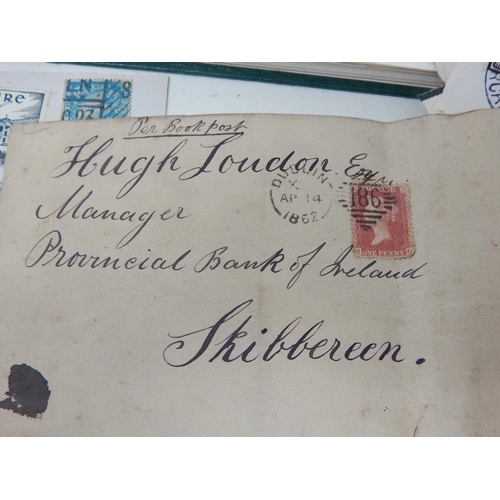 Per Book post
Hugh London Esq
Manager
Provincial Bank of Ireland
Skibbereen.
DUBLIN
AP 14
1862
186
ONE PENNY